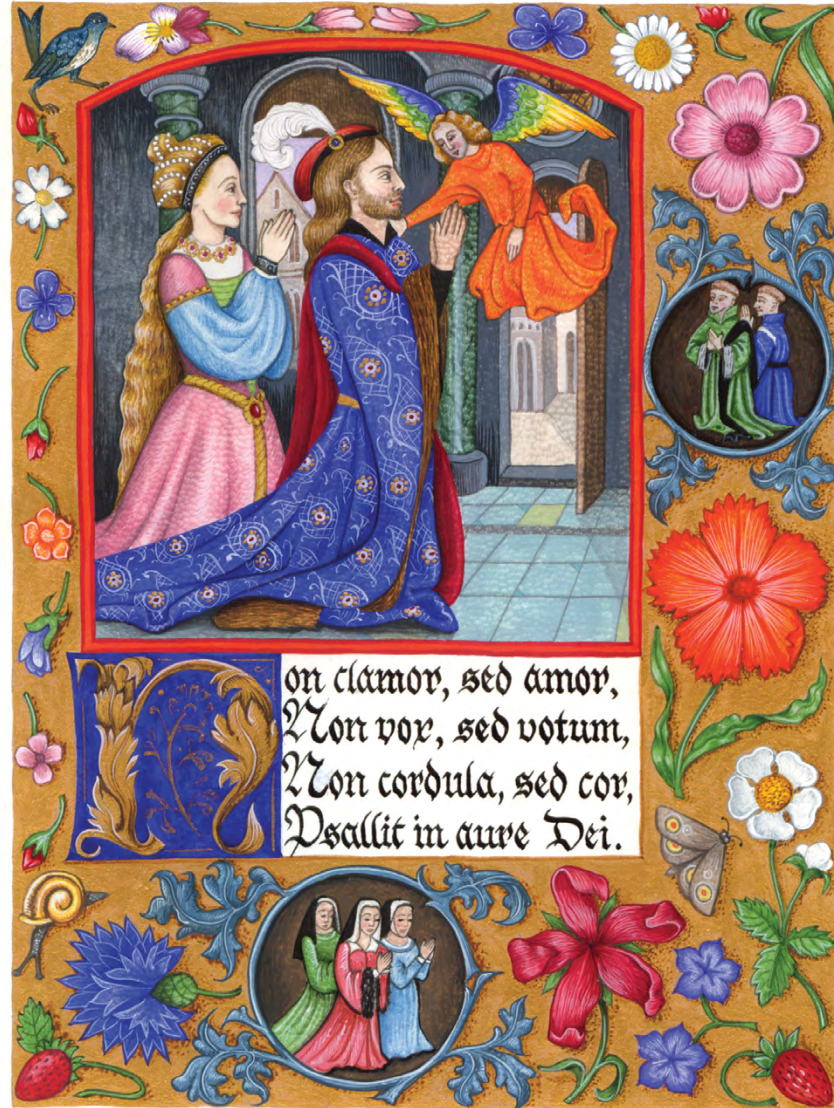 Non clamor, sed amor,
Non vox, sed votum,
Non cordula, sed cor,
Psallit in aure Dei.